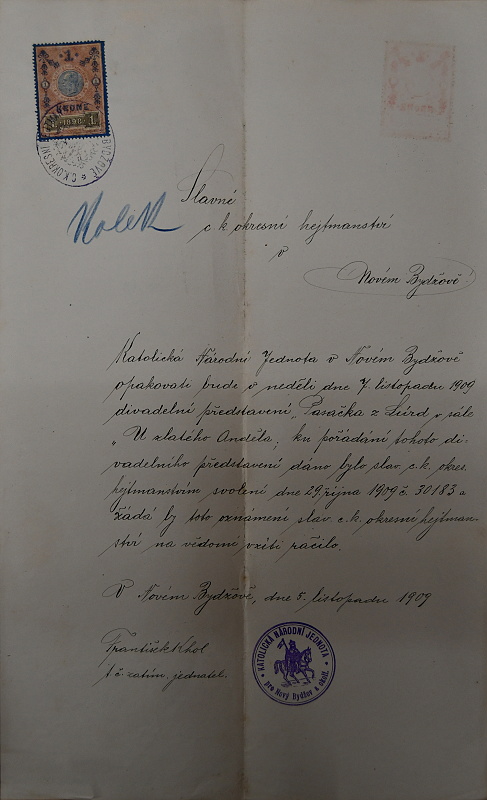 1
KRONE
1 1898 1
BYDŽOVĚ * C.K. OKRESNÍ
Kolek
Slavné
c. k. okresní hejtmanství
v
Novém Bydžově!
Katolická Národní Jednota v Novém Bydžově
opakovati bude v neděli dne 7. listopadu 1909
divadelní představení „Pasačka z Lúrd v sále
„U zlatého Anděla; ku pořádání tohoto di-
vadelního představení dáno bylo slav. c. k. okres.
hejtmanstvím svolení dne 29. října 1909 č. 30183 a
žádá by toto oznámení slav. c. k. okresní hejtman-
ství na vědomí vzíti ráčilo.
V Novém Bydžově, dne 5. listopadu 1909
František Khol
t. č. zatím. jednatel.
* KATOLICKÁ NÁRODNÍ JEDNOTA *
pro Nový Bydžov a okolí.